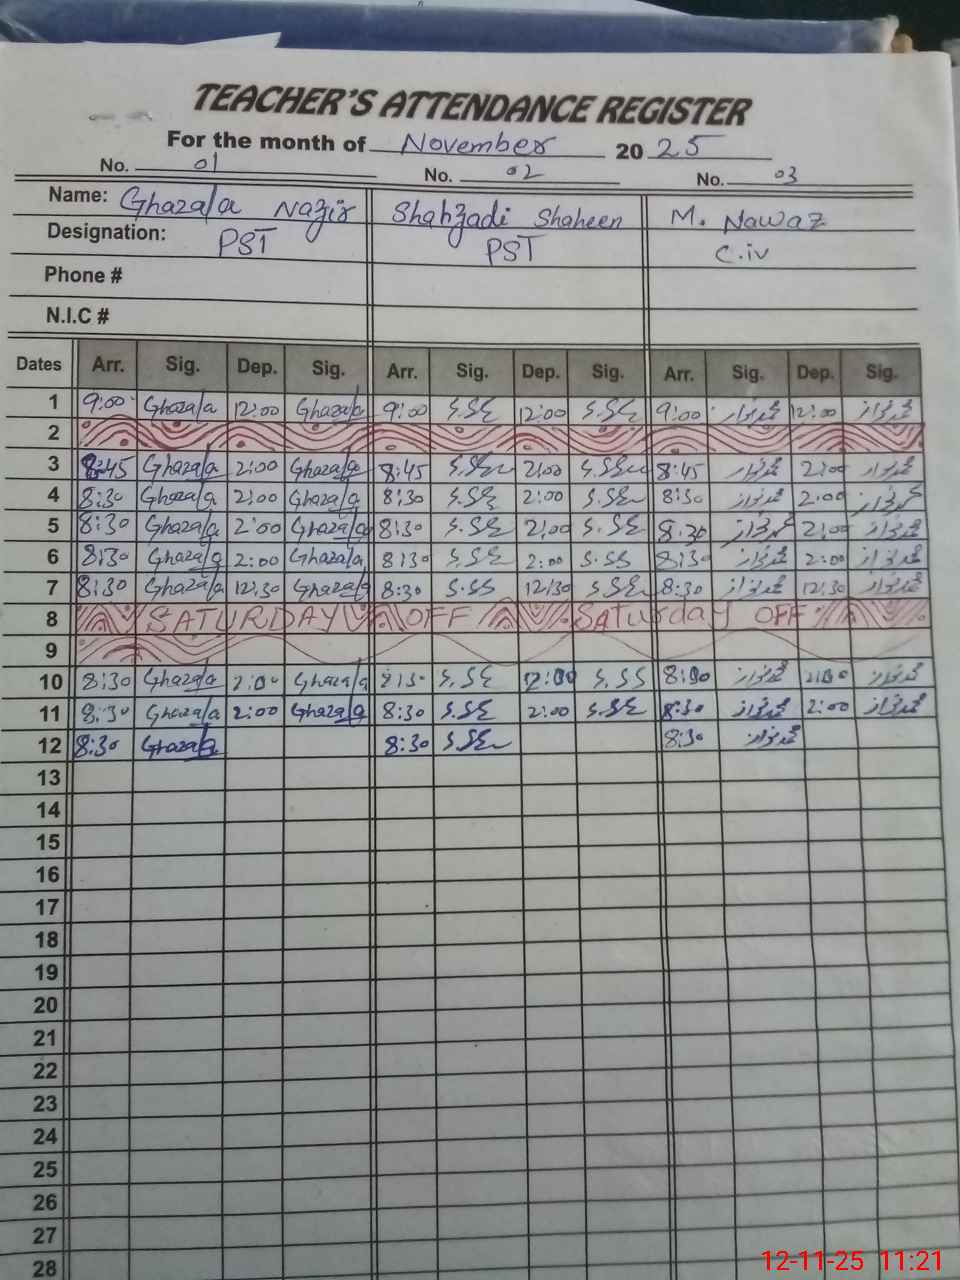 TEACHER'S ATTENDANCE REGISTER
For the month of November 2025
No. 01 No. 02 No. 03
Name: Ghazala Nazir Shahzadi Shaheen M. Nawaz
Designation: PST PST C.iv
Phone #
N.I.C #
Dates Arr. Sig. Dep. Sig. Arr. Sig. Dep. Sig. Arr. Sig. Dep. Sig.
1 9:00 Ghazala 12:00 Ghazala 9:00 12:00 9:00 محمد نواز 12:00 محمد نواز
2
3 8:45 Ghazala 2:00 Ghazala 8:45 2:00 8:45 محمد نواز 2:00 محمد نواز
4 8:30 Ghazala 2:00 Ghazala 8:30 2:00 8:30 محمد نواز 2:00 محمد نواز
5 8:30 Ghazala 2:00 Ghazala 8:30 2:00 8:30 محمد نواز 2:00 محمد نواز
6 8:30 Ghazala 2:00 Ghazala 8:30 2:00 S.SS 8:30 محمد نواز 2:00 محمد نواز
7 8:30 Ghazala 12:30 Ghazala 8:30 S.SS 12:30 8:30 محمد نواز 12:30 محمد نواز
8 SATURDAY OFF Saturday OFF
9
10 8:30 Ghazala 2:00 Ghazala 8:30 S.SS محمد نواز 2:00 محمد نواز
11 8:30 Ghazala 2:00 Ghazala 8:30 2:00 8:30 محمد نواز 2:00 محمد نواز
12 8:30 Ghazala 8:30 8:30 محمد نواز
13
14
15
16
17
18
19
20
21
22
23
24
25
26
27
28
12-11-25 11:21